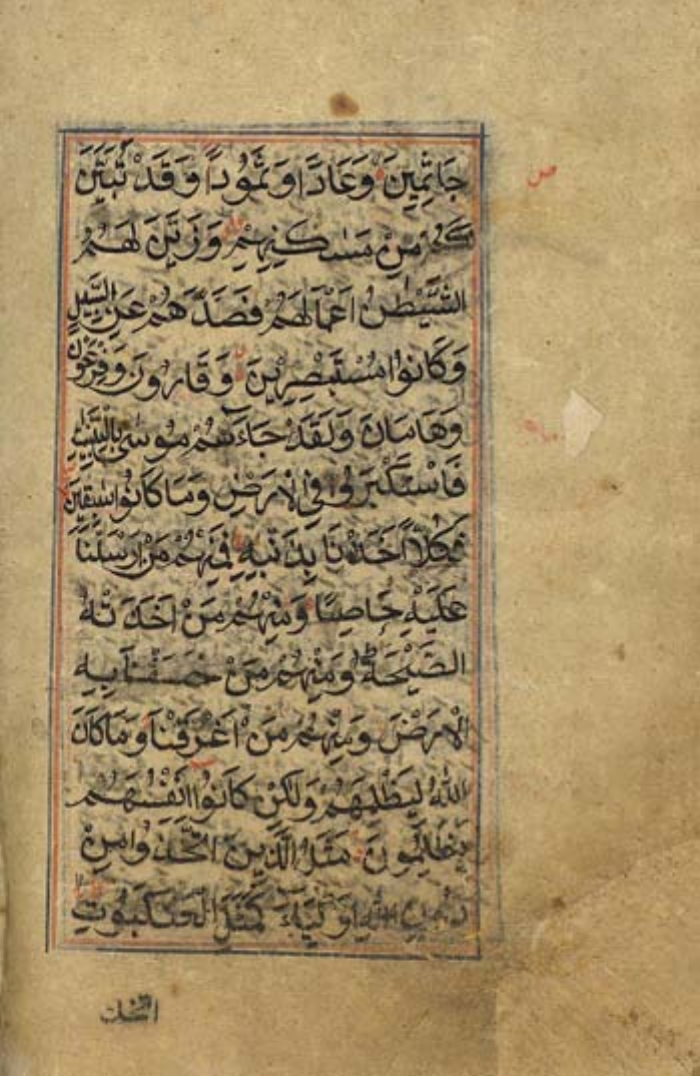 جَاثِمِينَ وَعَادًا وَثَمُودًا وَقَدْ تَبَيَّنَ
لَكُمْ مِنْ مَسٰكِنِهِمْ وَزَيَّنَ لَهُمُ
الشَّيْطٰنُ اَعْمَالَهُمْ فَصَدَّهُمْ عَنِ السَّبِيلِ
وَكَانُوا مُسْتَبْصِرِينَ وَقَارُونَ وَفِرْعَوْنَ
وَهَامَانَ وَلَقَدْ جَاءَهُمْ مُوسٰى بِالْبَيِّنٰتِ
فَاسْتَكْبَرُوا فِي الْاَرْضِ وَمَا كَانُوا سٰبِقِينَ
فَكُلًّا اَخَذْنَا بِذَنْبِهِ فَمِنْهُمْ مَنْ اَرْسَلْنَا
عَلَيْهِ حَاصِبًا وَمِنْهُمْ مَنْ اَخَذَتْهُ
الصَّيْحَةُ وَمِنْهُمْ مَنْ خَسَفْنَا بِهِ
الْاَرْضَ وَمِنْهُمْ مَنْ اَغْرَقْنَا وَمَا كَانَ
اللّٰهُ لِيَظْلِمَهُمْ وَلٰكِنْ كَانُوا اَنْفُسَهُمْ
يَظْلِمُونَ مَثَلُ الَّذِينَ اتَّخَذُوا مِنْ
دُونِ اللّٰهِ اَوْلِيَاءَ كَمَثَلِ الْعَنْكَبُوتِ